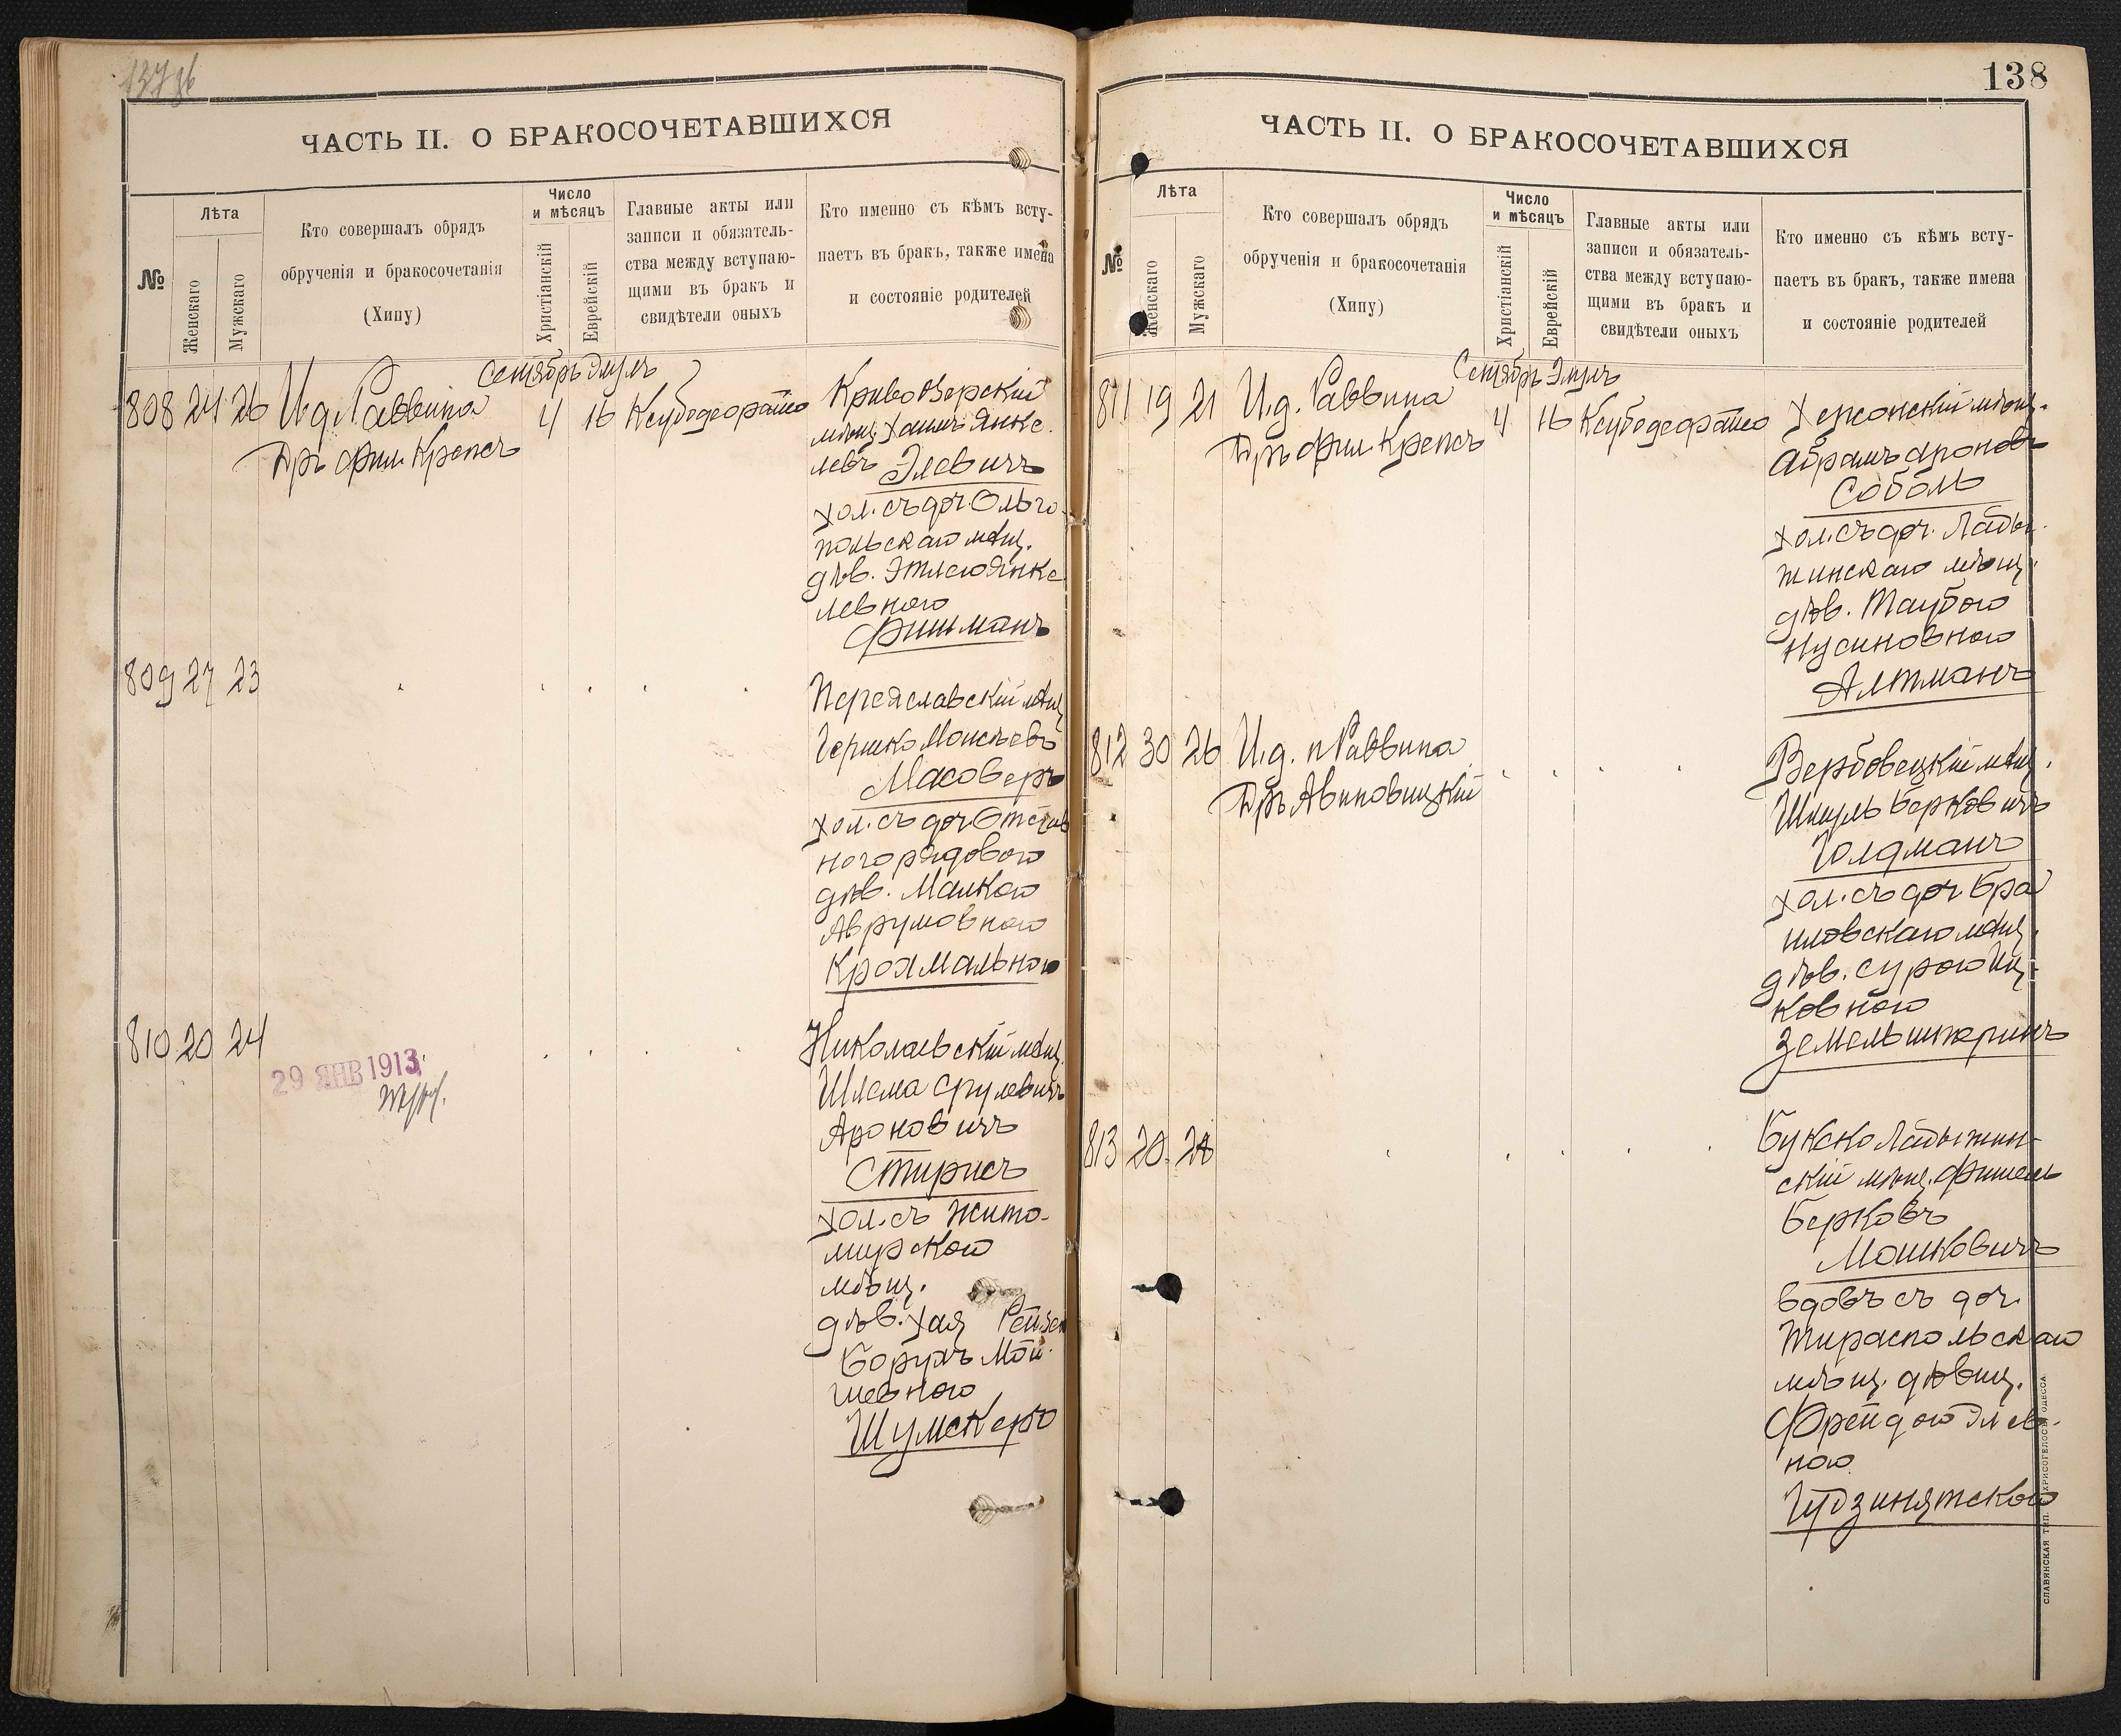 137 об
ЧАСТЬ II. О БРАКОСОЧЕТАВШИХСЯ
№
Лѣта
Женскаго
Мужскаго
Кто совершалъ обрядъ
обрученія и бракосочетанія
(Хипу)
Число
и мѣсяцъ
Христіанскій
Еврейскій
Главные акты или
записи и обязатель-
ства между вступаю-
щими въ бракъ и
свидѣтели оныхъ
Кто именно съ кѣмъ всту-
паетъ въ бракъ, также имена
и состояніе родителей
Сентябрь Элулъ
808 24 26 И.д. Раввина 4 16
Дръ Фил. Крепсъ
КривоѲзерскій
мѣщ. Хаимъ Янке-
левъ Элевичъ
хол. съ доч. Ольго-
польскаго мѣщ.
дѣв. Этлею Янке
левною
Фишманъ
809 27 23
Переяславскій мѣщ
Гершко Моисѣевъ
Масоверъ
хол. съ доч Отстав
ного рядового
дѣв. Малкою
Аврумовною
Кроямальною
810 20 24
29 ЯНВ 1913
Николаевскій мѣщ.
Шлема Срулевичъ
Ароновичъ
Стирисъ
хол. съ Жито-
мирской
мѣщ.
дѣв. Хая Рейзей
Борухъ Мой-
шевною
Шумскеръ
138
ЧАСТЬ II. О БРАКОСОЧЕТАВШИХСЯ
№
Лѣта
Женскаго
Мужскаго
Кто совершалъ обрядъ
обрученія и бракосочетанія
(Хипу)
Число
и мѣсяцъ
Христіанскій
Еврейскій
Главные акты или
записи и обязатель-
ства между вступаю-
щими въ бракъ и
свидѣтели оныхъ
Кто именно съ кѣмъ всту-
паетъ въ бракъ, также имена
и состояніе родителей
Сентябрь Элулъ
811 19 21 И.д. Раввина 4 16
Дръ Фил. Крепсъ
Херсонскій мѣщ.
Абрамъ Ароновъ
Соболь
хол. съ доч. Лады-
жинскаго мѣщ.
дѣв. Таубою
Нусиновною
Алтманъ
812 30 26 И.д. п Раввина
Дръ Авиновицкій
Вербовецкій мѣщ.
Шмуль Берковичъ
Голдманъ
хол. съ доч Бра
иловскаго мѣщ.
дѣв. Сурою Иц-
ковною
Земельштернъ
813 20
Букско Ладыжин-
скій мѣщ. Фишель
Берковъ
Мошковичъ
вдовъ съ доч.
Тираспольскаго
мѣщ. дѣвиц.
Фрейдою Элев-
ною
СЛАВЯНСКАЯ ТИП. Е. ХРИСОГЕЛОСЪ, ОДЕССА